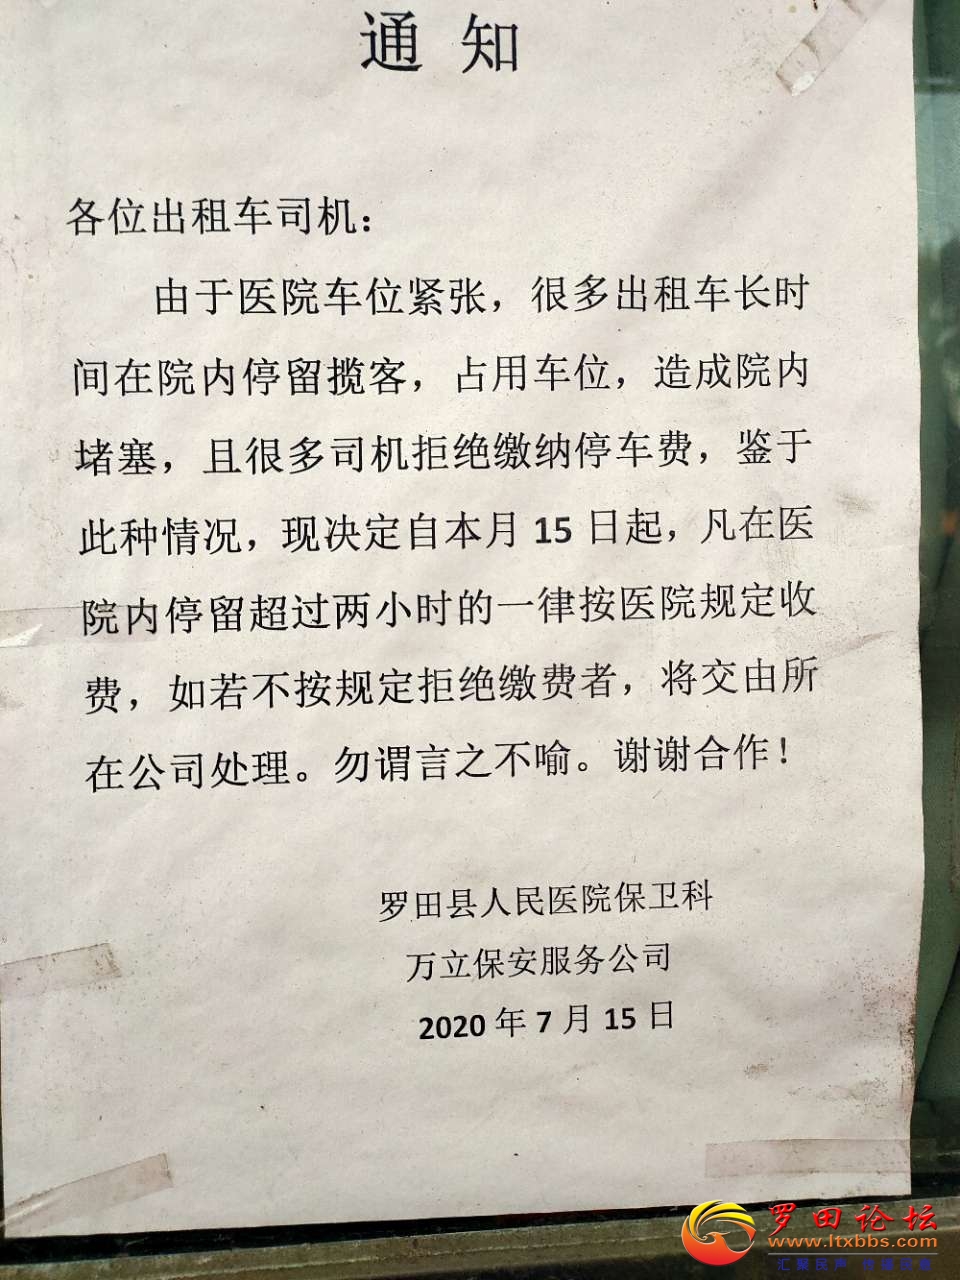 通知
各位出租车司机：
由于医院车位紧张，很多出租车长时
间在院内停留揽客，占用车位，造成院内
堵塞，且很多司机拒绝缴纳停车费，鉴于
此种情况，现决定自本月15日起，凡在医
院内停留超过两小时的一律按医院规定收
费，如若不按规定拒绝缴费者，将交由所
在公司处理。勿谓言之不喻。谢谢合作！
罗田县人民医院保卫科
万立保安服务公司
2020年7月15日
罗田论坛
www.ltxbbs.com
汇聚民声